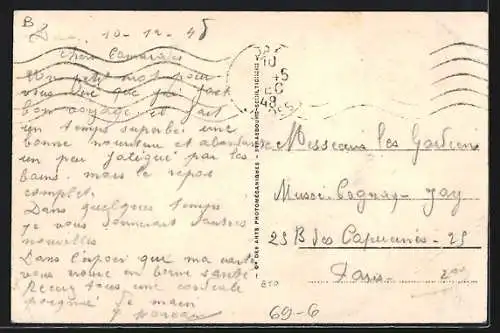 B
Dax, 10-12-48
Chers Camarades
Un petit mot pour
vous dire que j'ai fait
bon voyage et fait
un temps superbe une
bonne nourriture et abondante
un peu fatigué par les
bains. mais le repos
complet.
Dans quelques temps
je vous donnerai d'autres
nouvelles
Dans l'espoir que ma carte
vous trouve en bonne santé
Recevez tous une cordiale
poignée de main
10
DC
48
Cie DES ARTS PHOTOMECANIQUES - STRASBOURG-SCHILTIGHEIM
Messieurs les Gardiens
Musée Cognacq-Jay
25 B des Capucines - 25
Paris
69-6